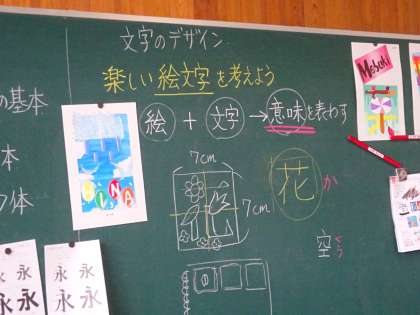 文字のデザイン
楽しい絵文字を考えよう
絵 + 文字 → 意味を表わす
の基本
本
体
7cm
7cm
花
か
空
Mebuki
永 永
永 永